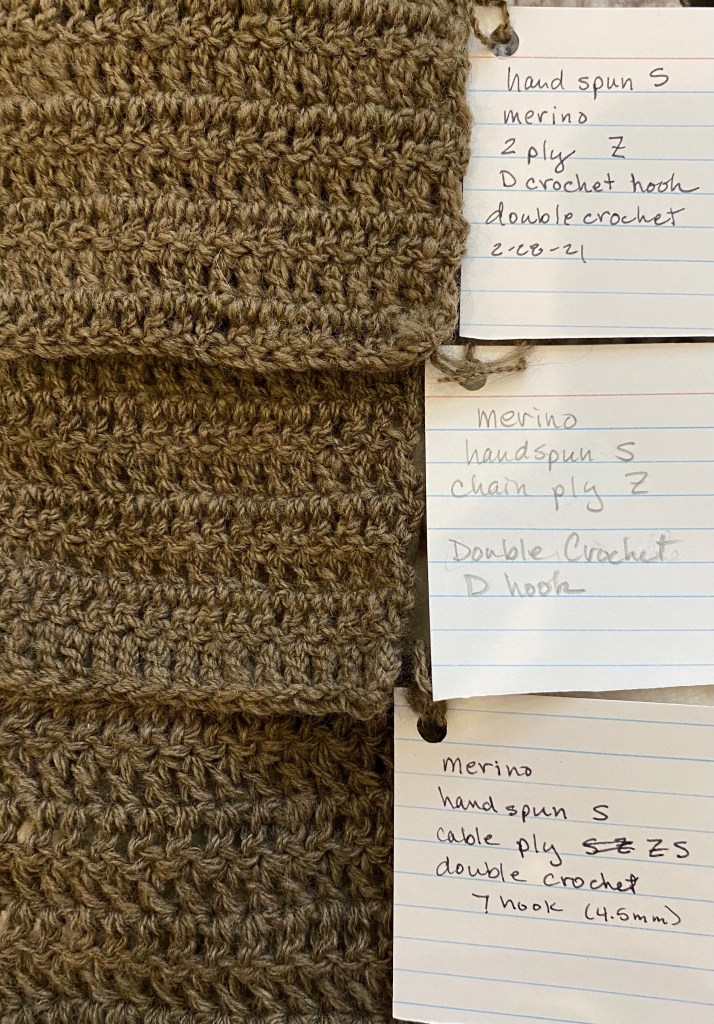 hand spun S
merino
2 ply Z
D crochet hook
double crochet
2-28-21
merino
handspun S
chain ply Z
Double Crochet
D hook
merino
hand spun S
cable ply S Z Z S
double crochet
7 hook (4.5mm)